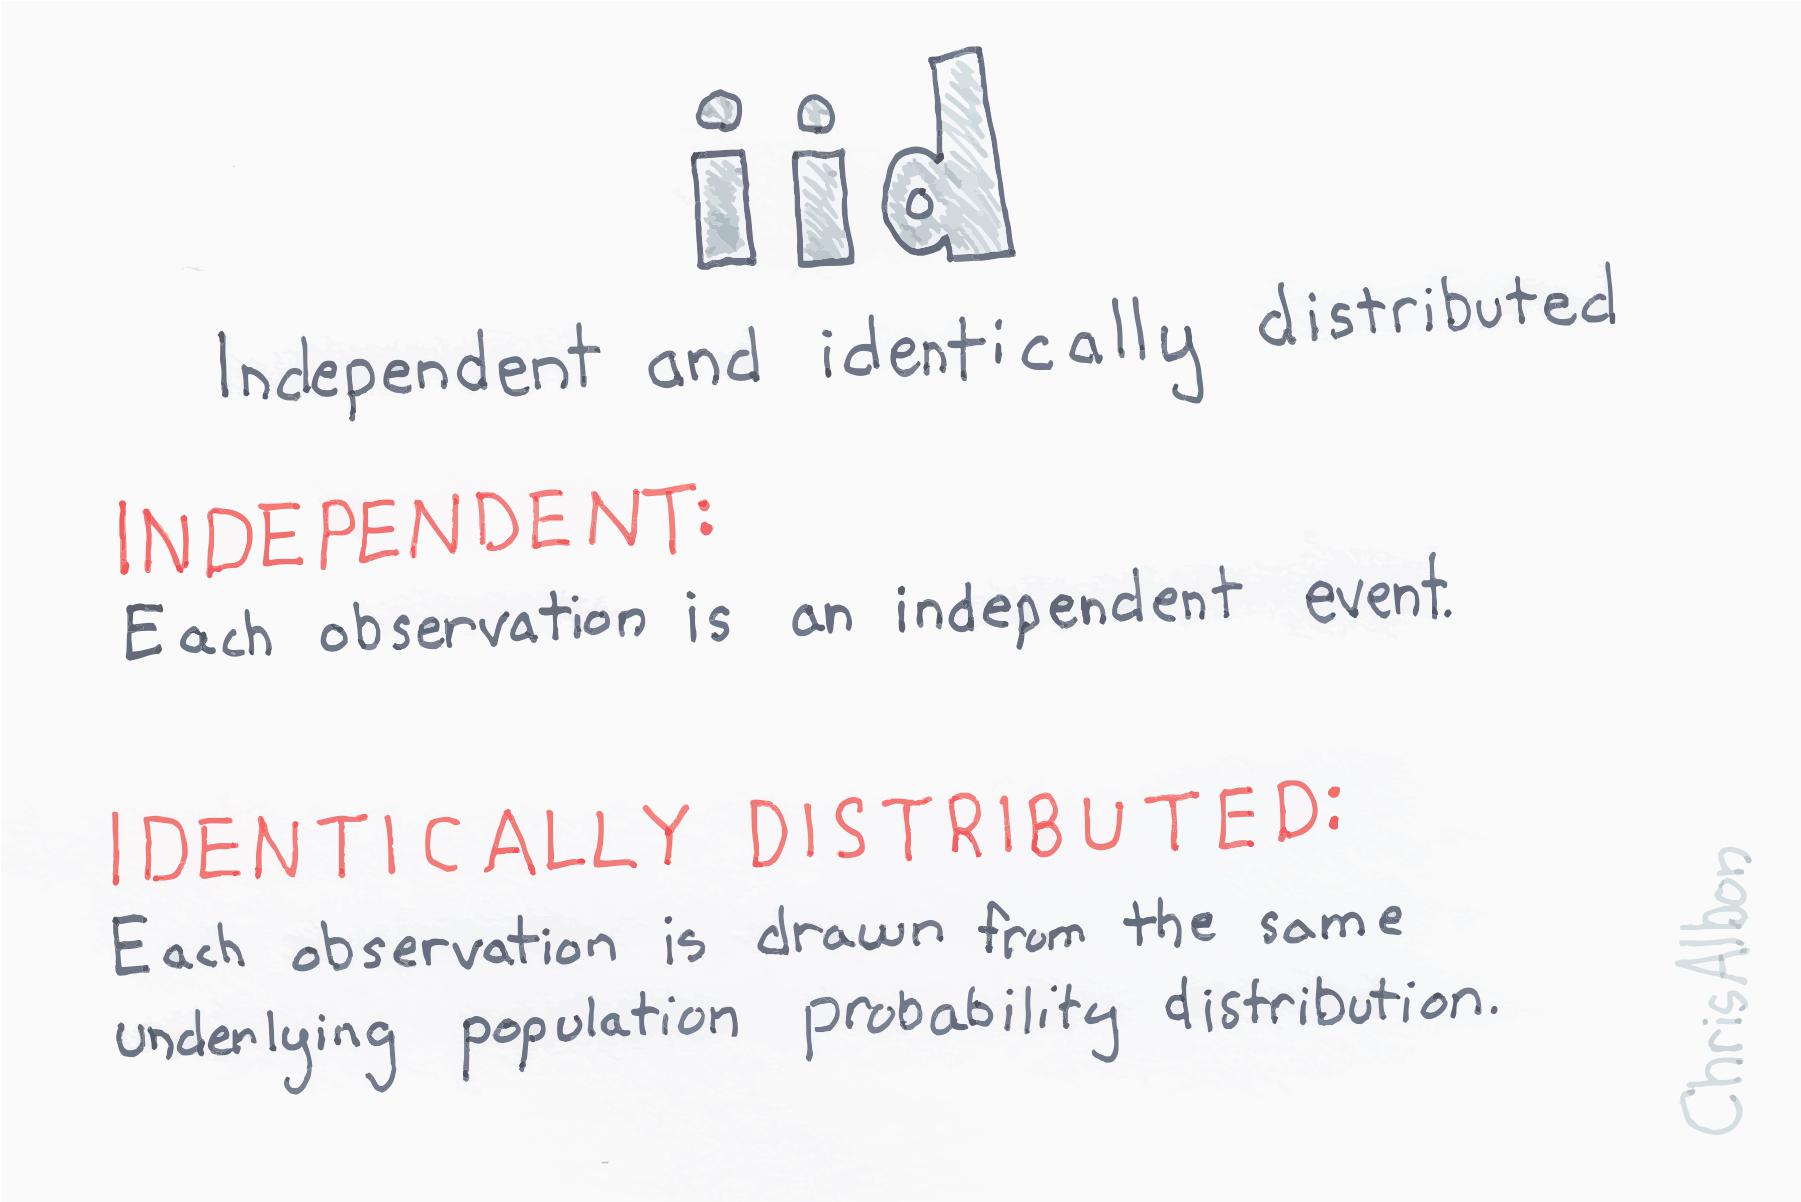 iid
Independent and identically distributed
INDEPENDENT:
Each observation is an independent event.
IDENTICALLY DISTRIBUTED:
Each observation is drawn from the same
underlying population probability distribution.
Chris Albon